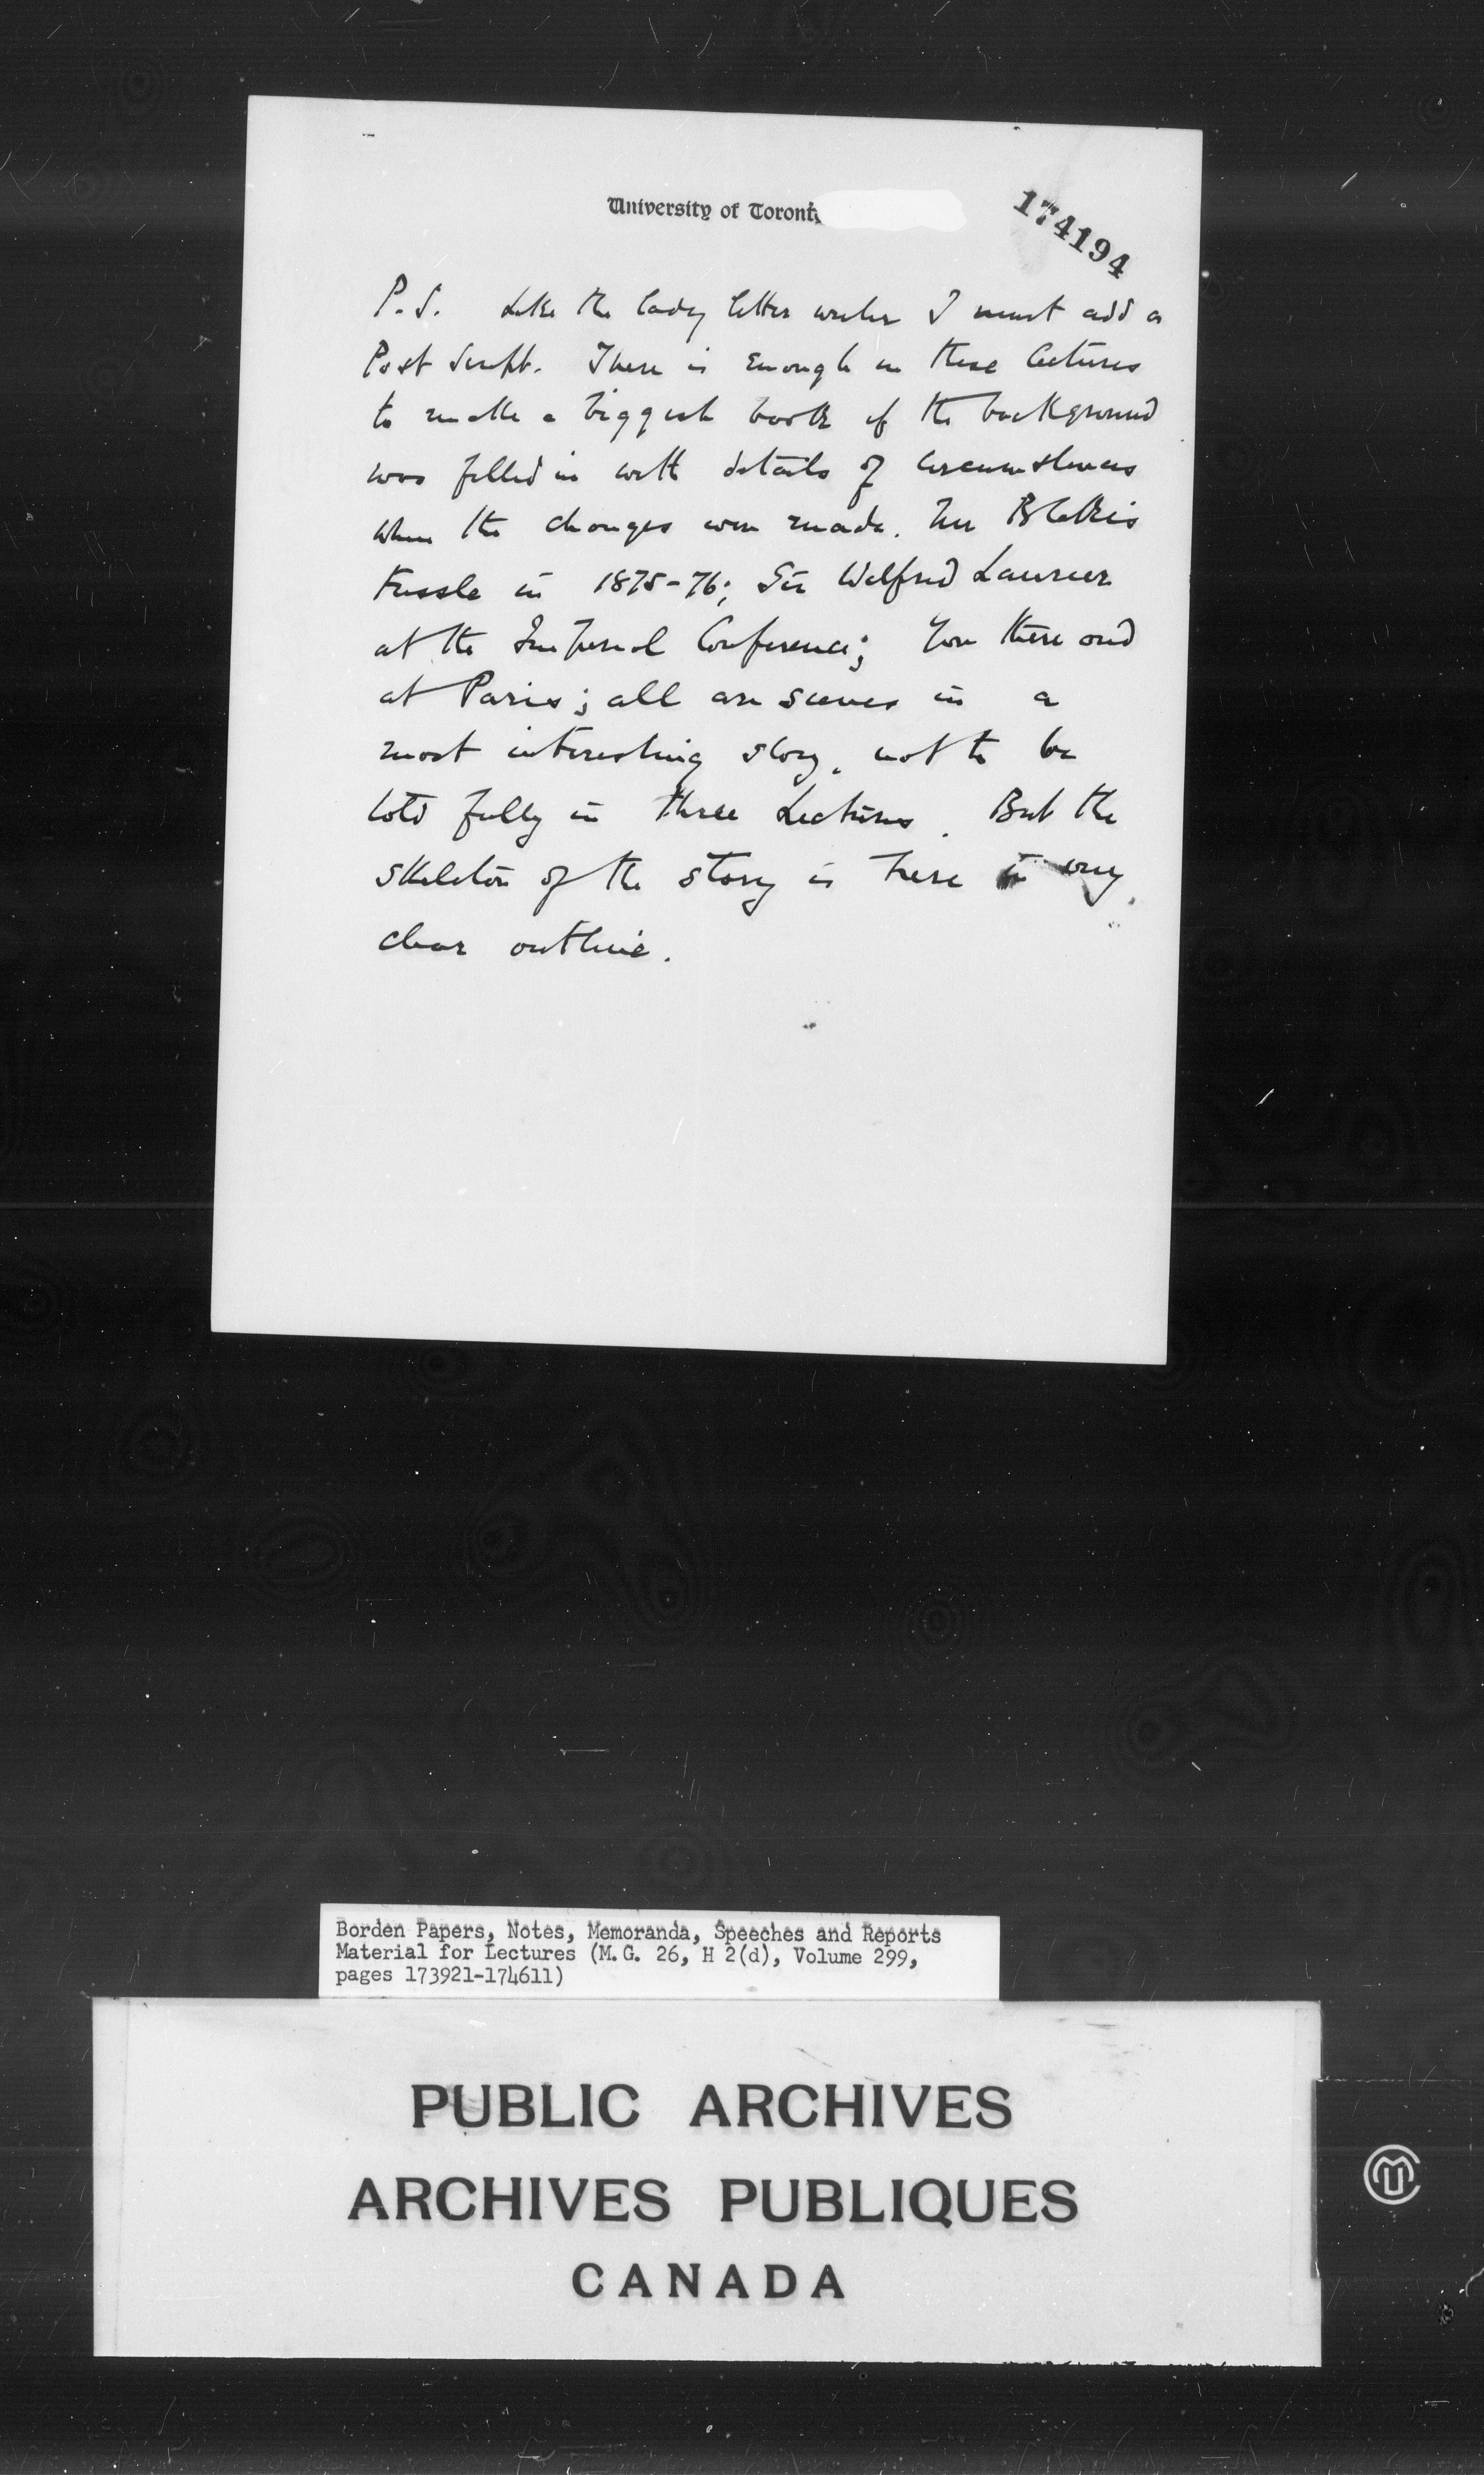 University of Toronto
174194
P.S. Like the lady letter writer I must add a
Post Script. There is enough in these lectures
to make a biggish book if the background
was filled in with details of circumstances
when the changes were made. Mr Blake's
tussle in 1875-76; Sir Wilfrid Laurier
at the Imperial Conference; You there and
at Paris; all are scenes in a
most interesting story, not to be
told fully in three Lectures. But the
skeleton of the story is here in very
clear outline.
Borden Papers, Notes, Memoranda, Speeches and Reports
Material for Lectures (M.G. 26, H 2(d), Volume 299,
pages 173921-174611)
PUBLIC ARCHIVES
ARCHIVES PUBLIQUES
CANADA